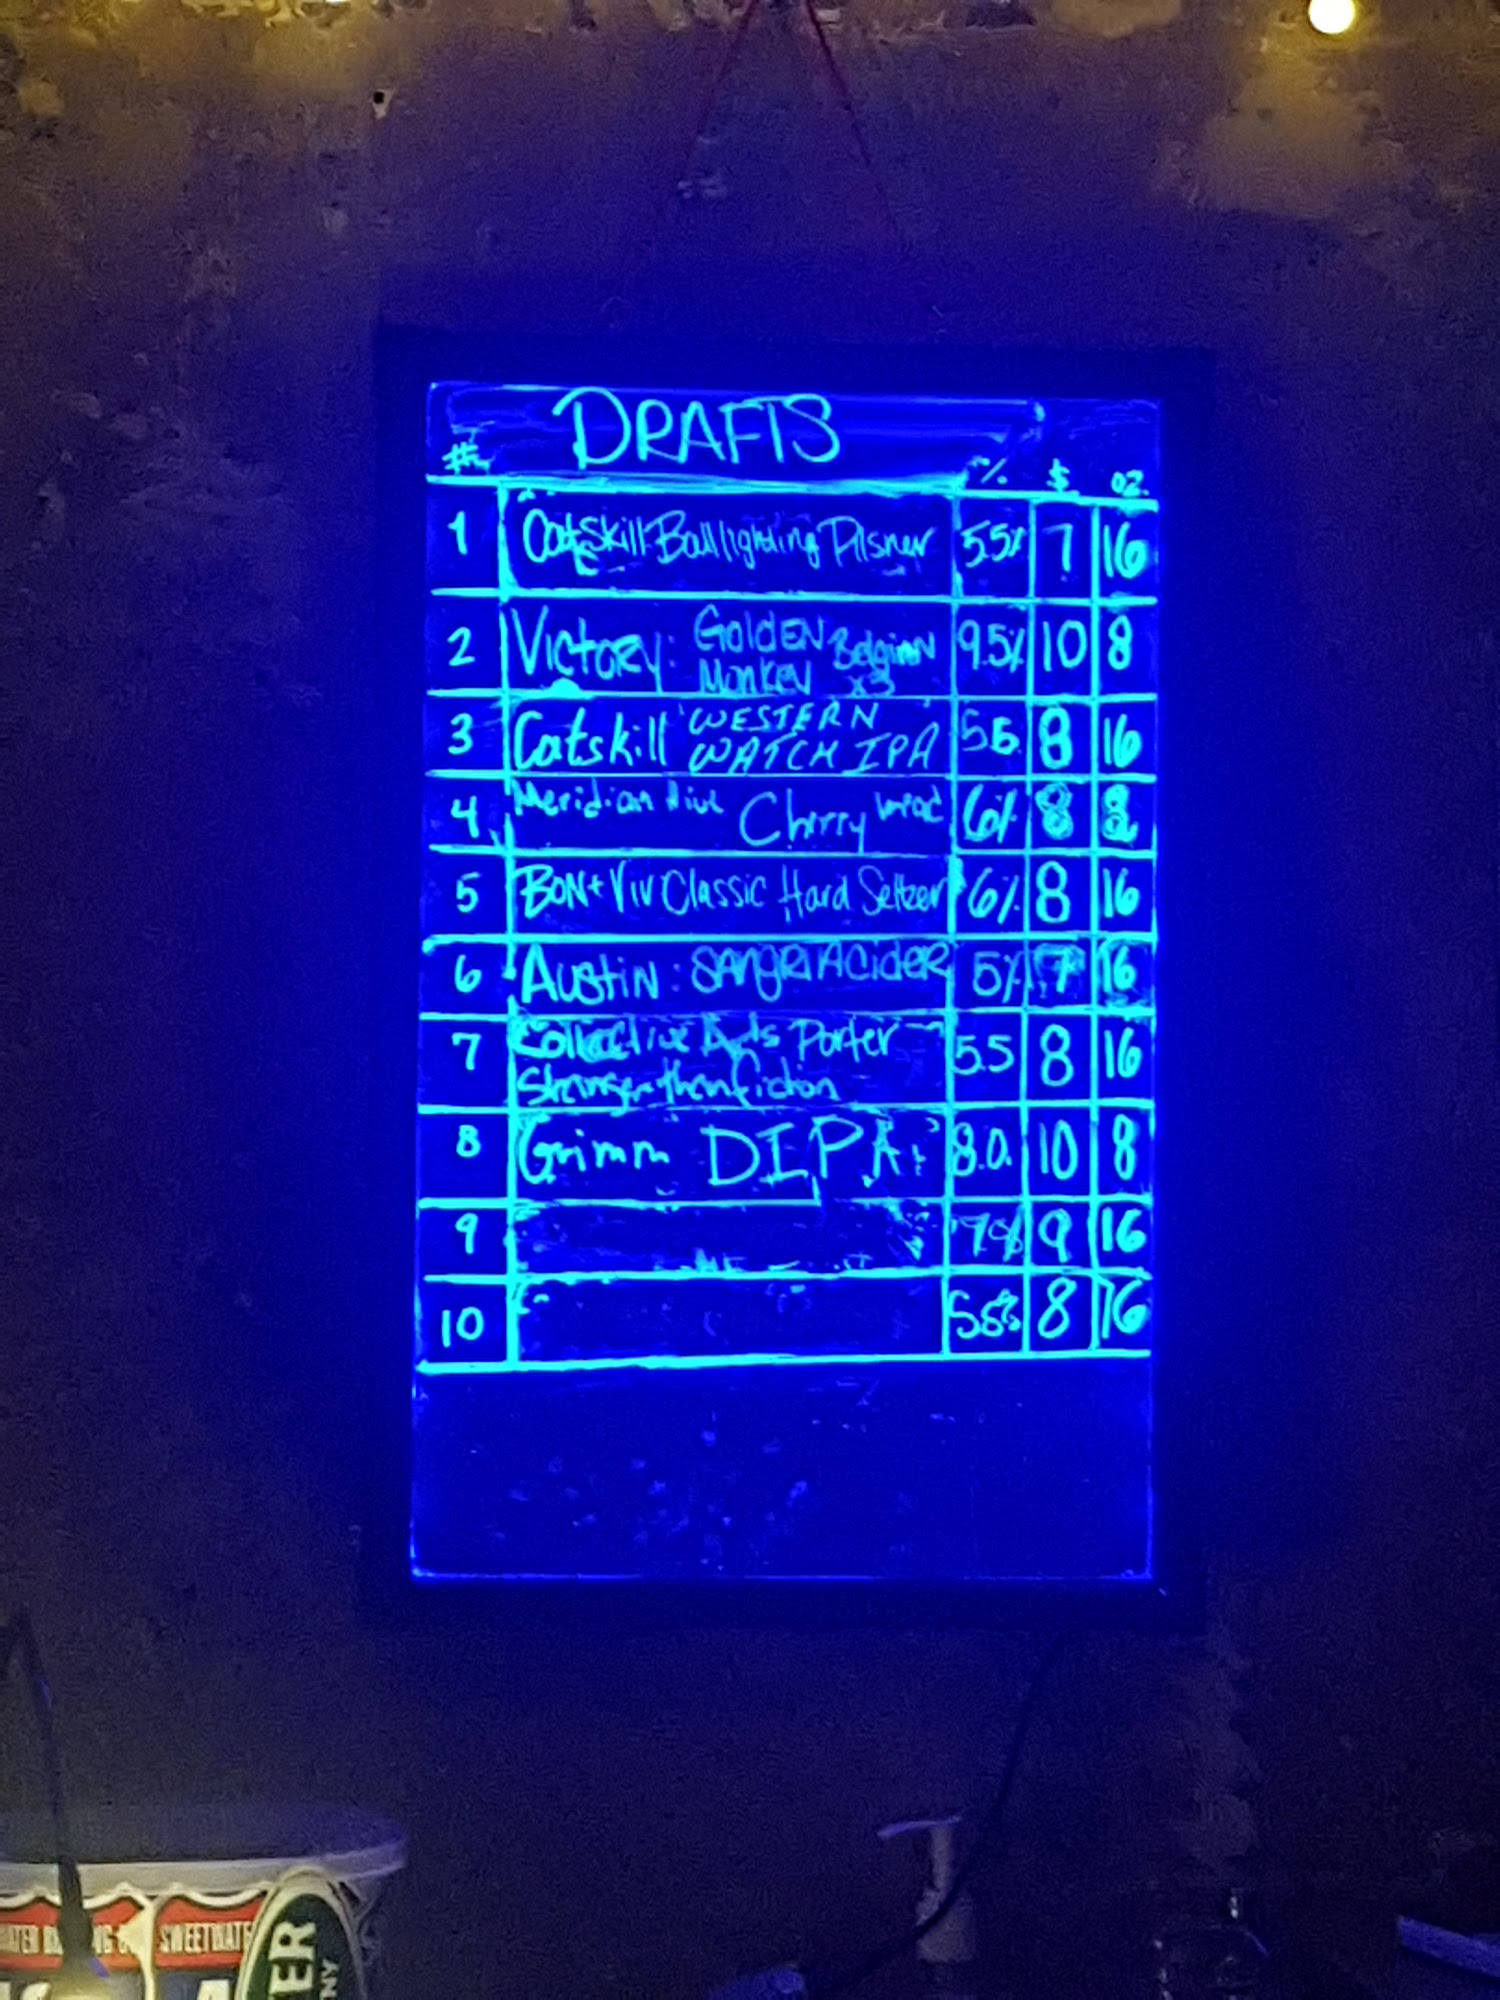 DRAFTS
# % $ oz.
1 Catskill Ball lightning Pilsner 5.5% 7 16
2 VICTORY: GOLDEN MONKEY Belgian x3 9.5% 10 8
3 Catskill WESTERN WATCH IPA 5.5 8 16
4 Meridian Hive Cherry Mead 6% 8 8
5 BON+VIV Classic Hard Seltzer 6% 8 16
6 AUSTIN: SANGRIA CIDER 5% 7 16
7 Collective Arts Porter Stranger than fiction 5.5 8 16
8 Grimm DIPA 8.0. 10 8
9 7% 9 16
10 8 16
SWEETWATE
ER
NY